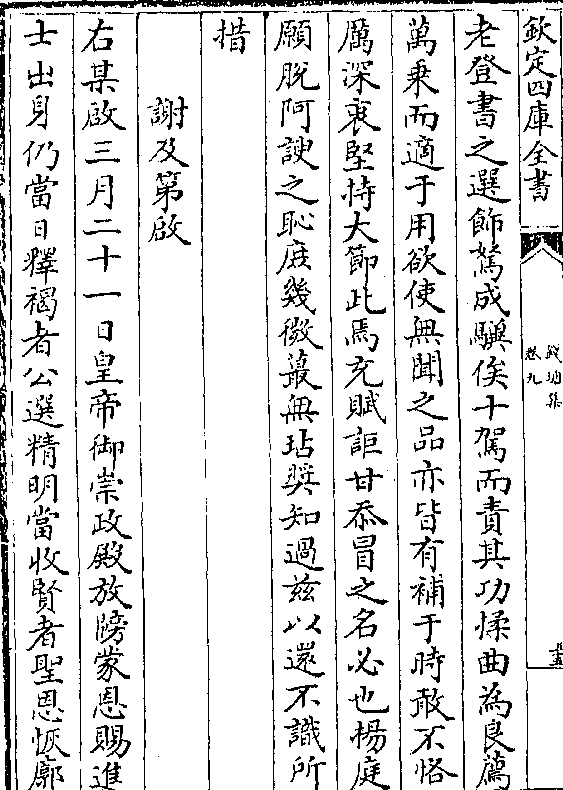 欽定四庫全書
卷九
老登書之選飾駑成驥俟十駕而責其功煣曲為良薦
萬乗而適于用欲使無聞之品亦皆有補于時敢不恪
厲深衷堅持大節此焉充賦詎甘忝冒之名必也楊庭
願脫阿諛之恥庶幾微蕞無玷奨知過兹以還不識所
措
謝及第啟
右某啟三月二十一日皇帝御崇政殿放牓蒙恩賜進
士出身仍當日釋褐者公選精明當收賢者聖恩恢廓